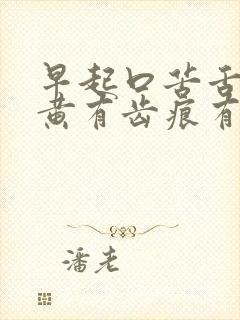 早起口苦舌
黄有齿痕有
潘老